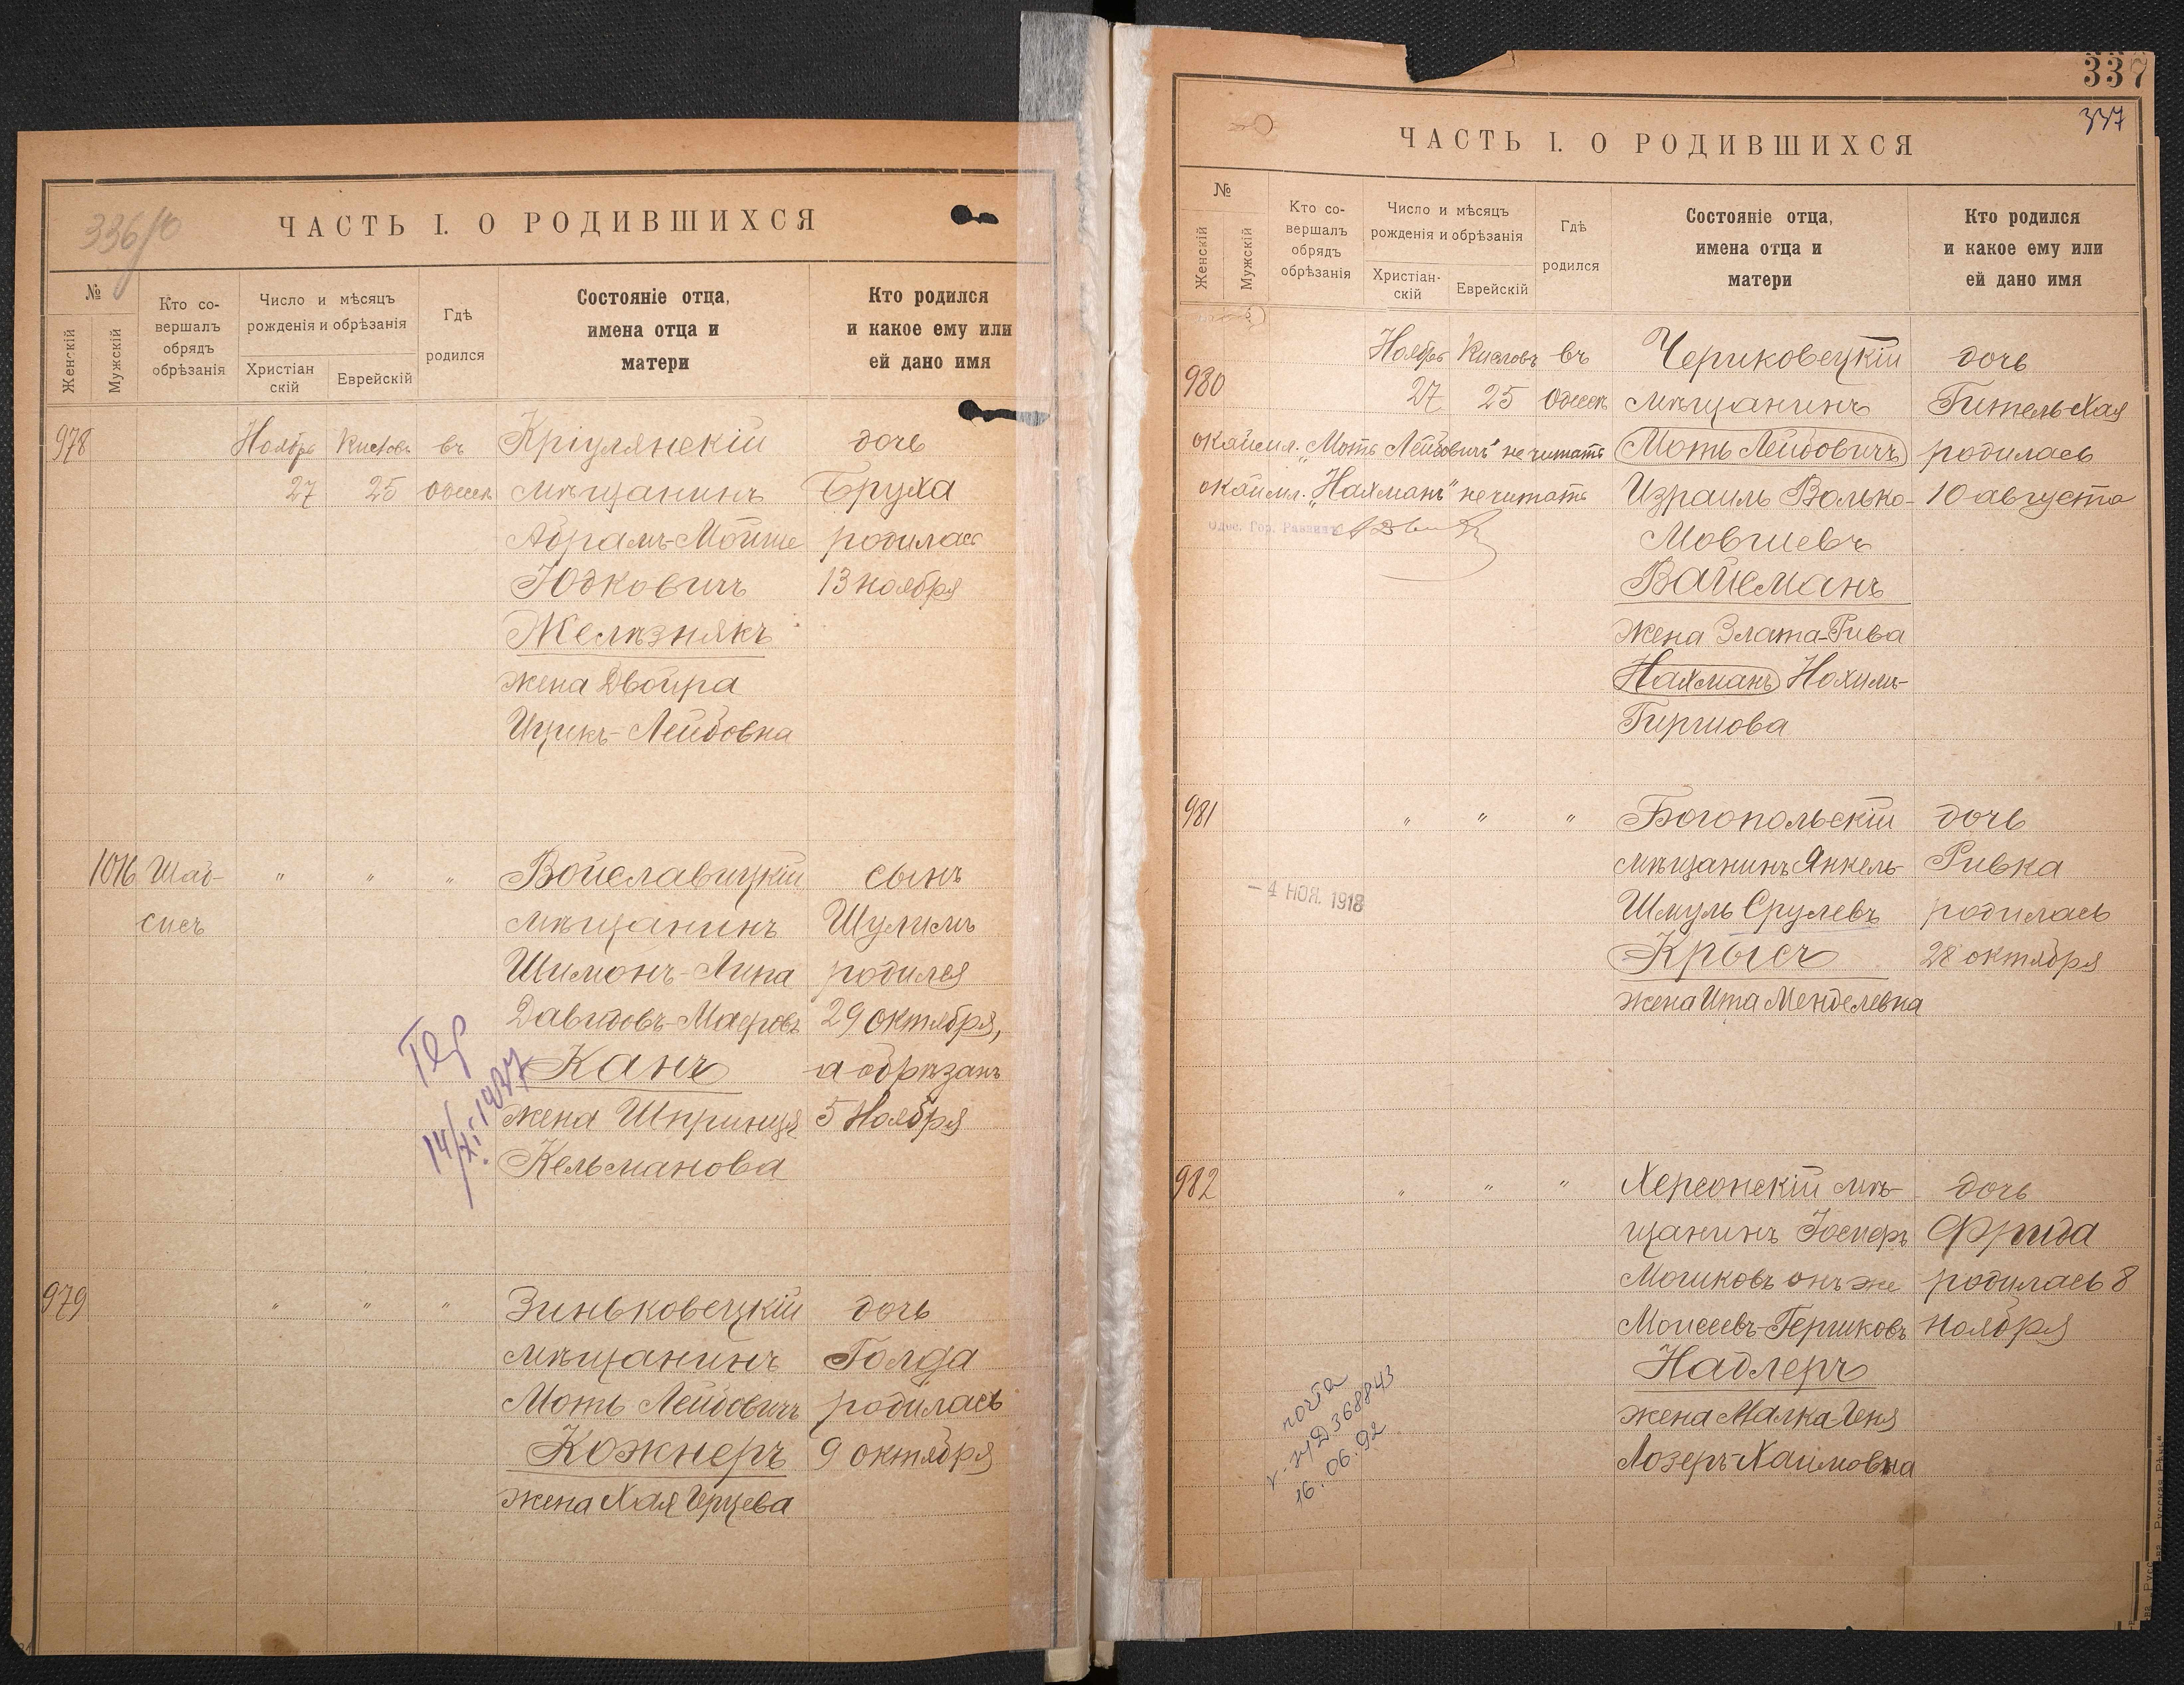 336/о
ЧАСТЬ I. О РОДИВШИХСЯ
№
Женскій
Мужскій
Кто со-
вершалъ
обрядъ
обрѣзанія
Число и мѣсяцъ
рожденія и обрѣзанія
Христіан
скій
Еврейскій
Гдѣ
родился
Состояніе отца,
имена отца и
матери
Кто родился
и какое ему или
ей дано имя
978 Ноябрь Кислевъ въ Кріулянскій дочь
27 25 Одессѣ мѣщанинъ Бруха
Абрамъ-Мойше родилась
Юдковичъ 13 ноября
Желѣзнякъ
жена Двойра
Ицикъ-Лейбовна
1016 Шай- " " " Войславицкій сынъ
сисъ мѣщанинъ Шулимъ
Шимонъ-Липа родился
Давидовъ- 29 октября,
Канъ а обрѣзанъ
жена Шпринця 5 Ноября
Кельманова
14/XI-1937
979 " " " Зиньковецкій дочь
мѣщанинъ Голда
Моть Лейбовичъ родилась
Кожнеръ 9 октября
жена Хая Герцева
337
337
ЧАСТЬ I. О РОДИВШИХСЯ
№
Женскій
Мужскій
Кто со-
вершалъ
обрядъ
обрѣзанія
Число и мѣсяцъ
рожденія и обрѣзанія
Христіан-
скій
Еврейскій
Гдѣ
родился
Состояніе отца,
имена отца и
матери
Кто родился
и какое ему или
ей дано имя
980 Ноябрь Кислевъ въ Чериковецкій дочь
27 25 Одессѣ мѣщанинъ Гитель Хая
окаймл. „Моть Лейбовичъ" не читать Моть Лейбовичъ родилась
окаймл. „Нахманъ" не читать Израиль Волько- 10 августа
Одес. Гор. Раввинъ
Мовшевъ
Вайсманъ
жена Злата-Рива
Нахманъ Нохимъ-
Гиршова
981 " " " Богопольскій дочь
мѣщанинъ Янкель- Ривка
– 4 НОЯ. 1918
Шмуль Срулевъ родилась
Крысъ 28 октября
жена Ита Менделевна
982 " " " Херсонскій мѣ- дочь
щанинъ Іосифъ Фрида
Мошковъ онъ же родилась 8
Моисеевъ-Гершковъ ноября
Надлеръ
жена Малка-Геня
Лозеръ-Хаимовна
почта
368843
16.06.92